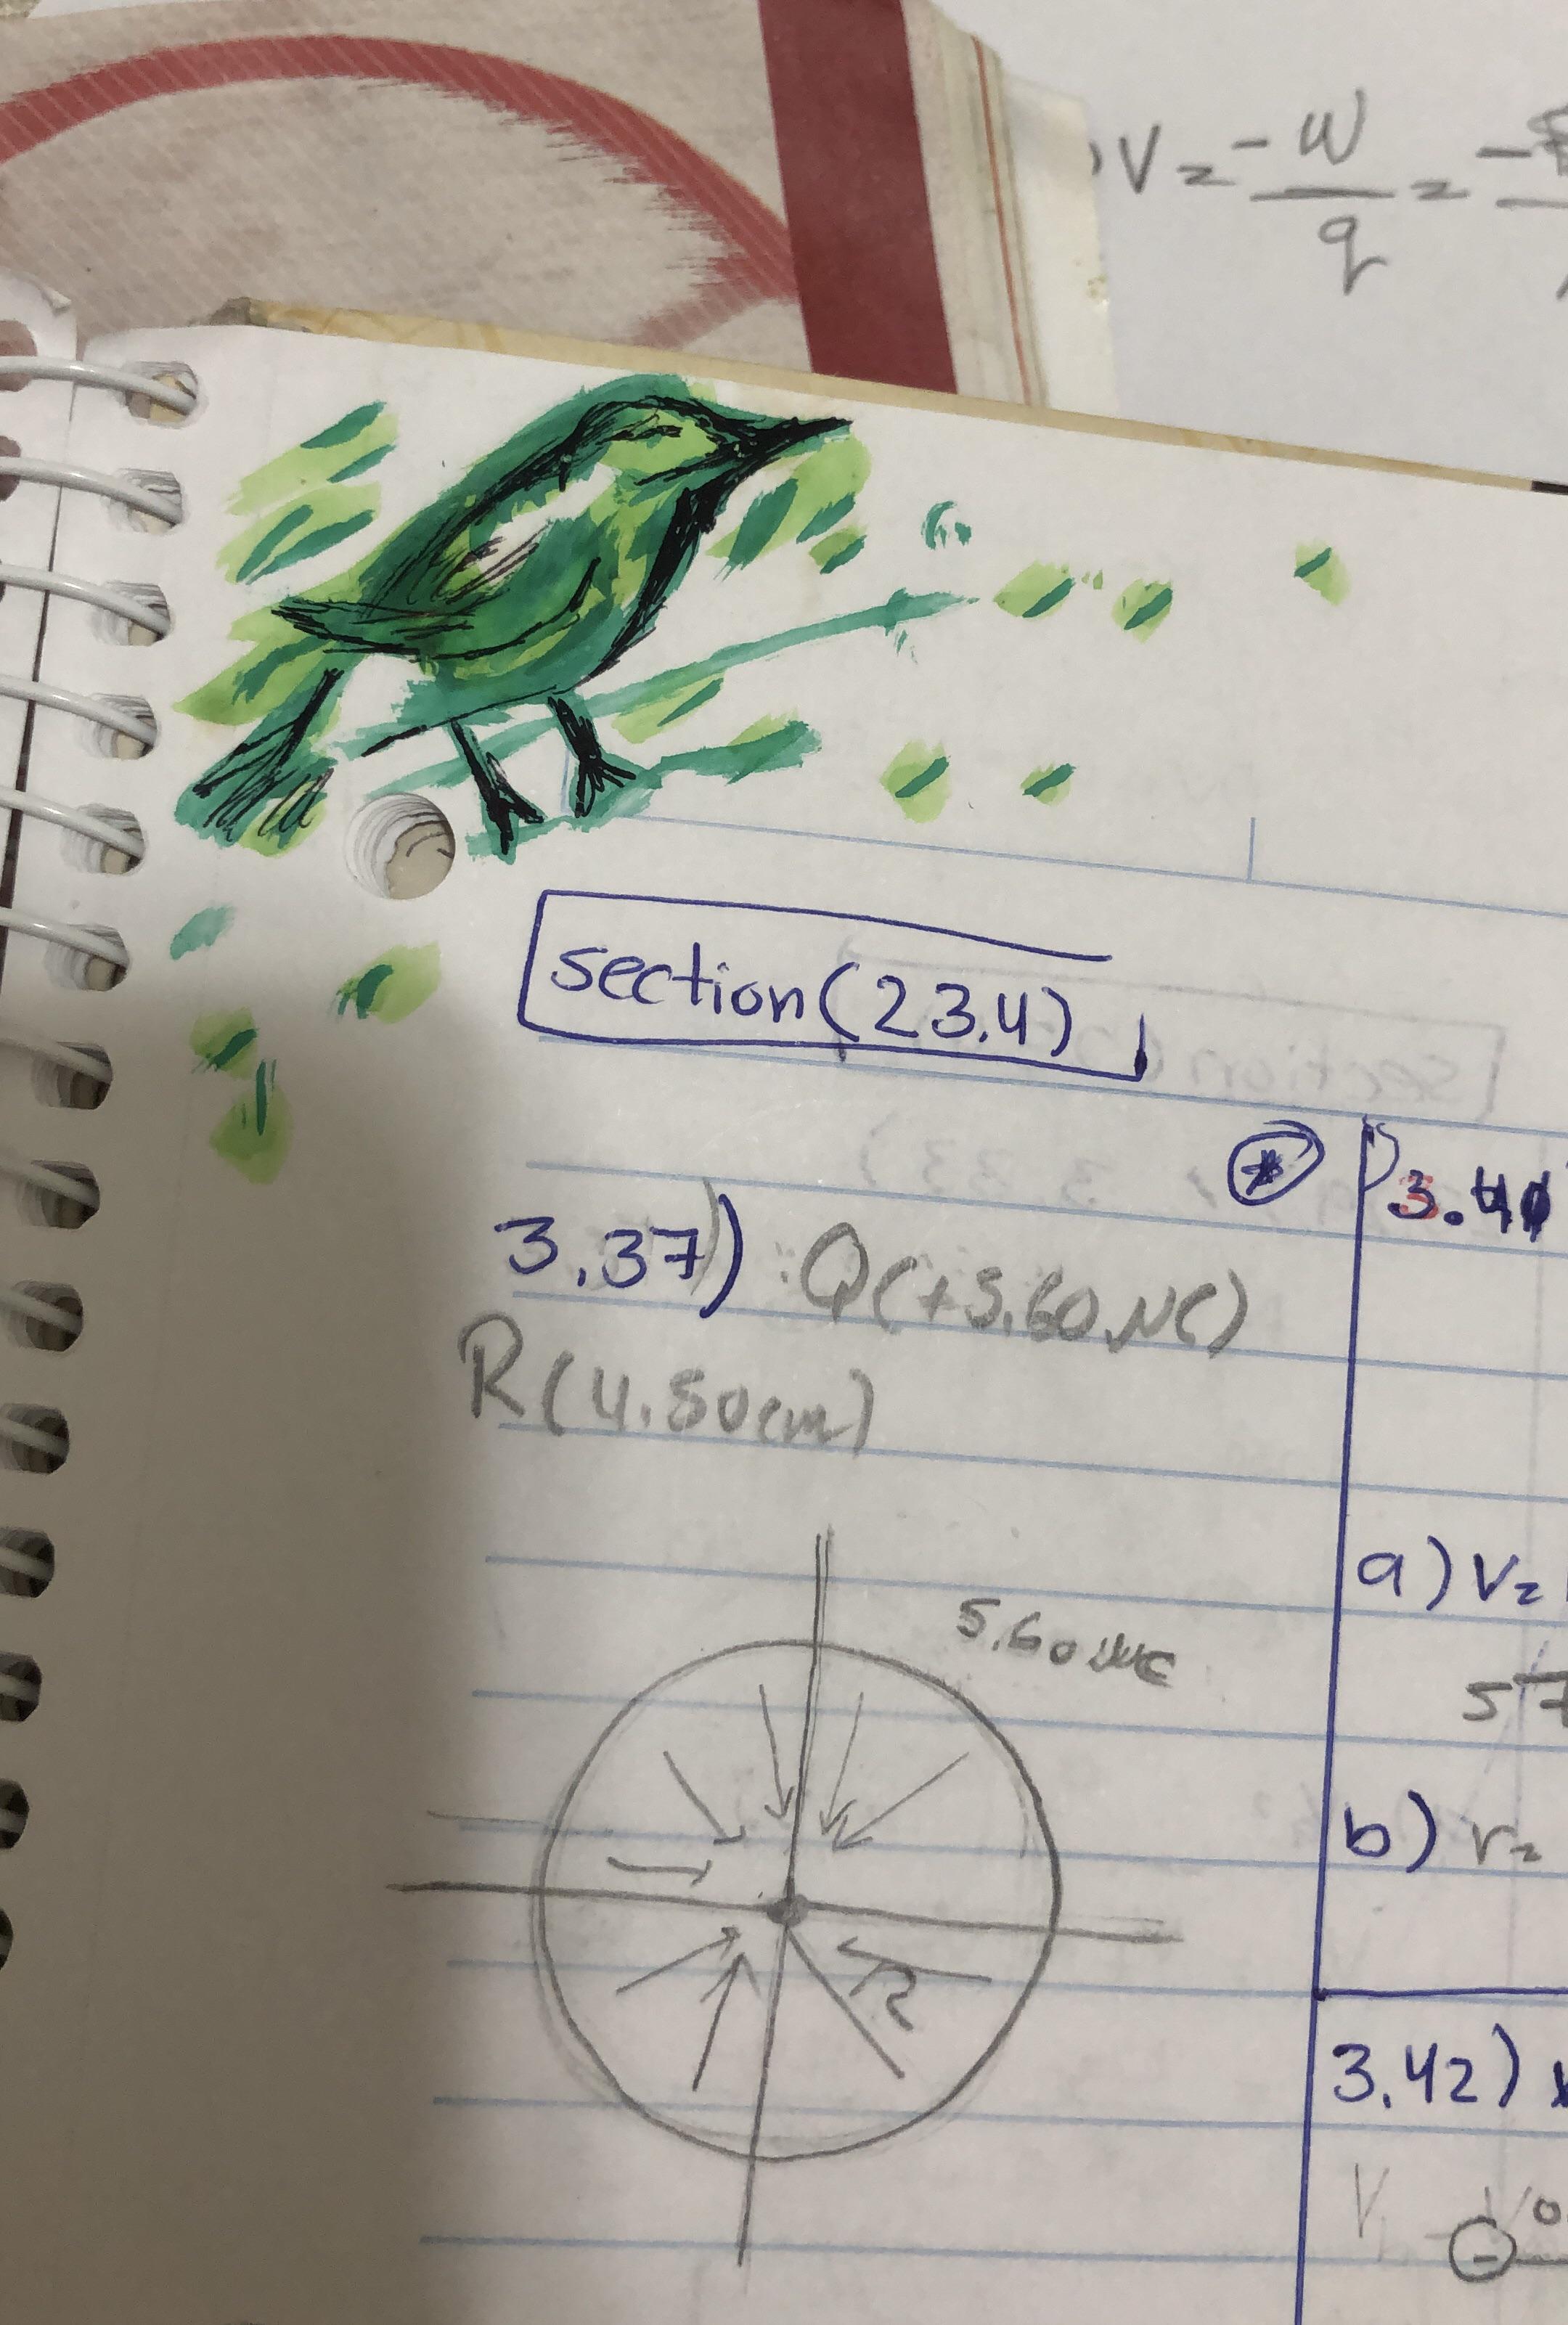 V = -W / q = -
section(23.4)
3.37) Q(+5.60 µC)
R(4.50cm)
5.60 µC
R
3.40
a) V=
57
b) r=
3.42)
V